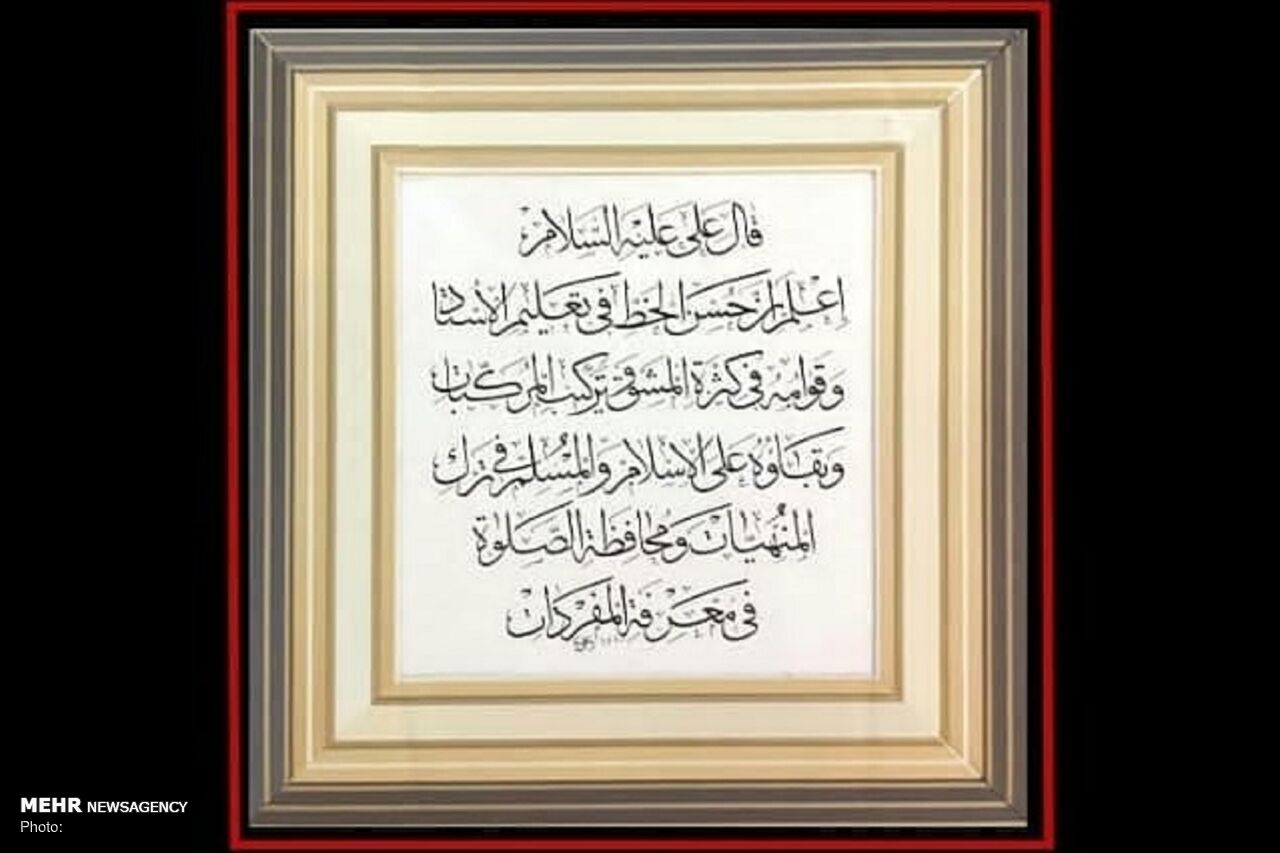 قال علی علیه السلام
إعلم ان حسن الخط فی تعلیم الأستاذ
وقوامه فی کثرة المشق و ترکیب المرکبات
وبقاؤه علی الاسلام والمسلم فی ترك
المنهیات ومحافظة الصلوة
فی معرفة المفردات
MEHR NEWSAGENCY
Photo: